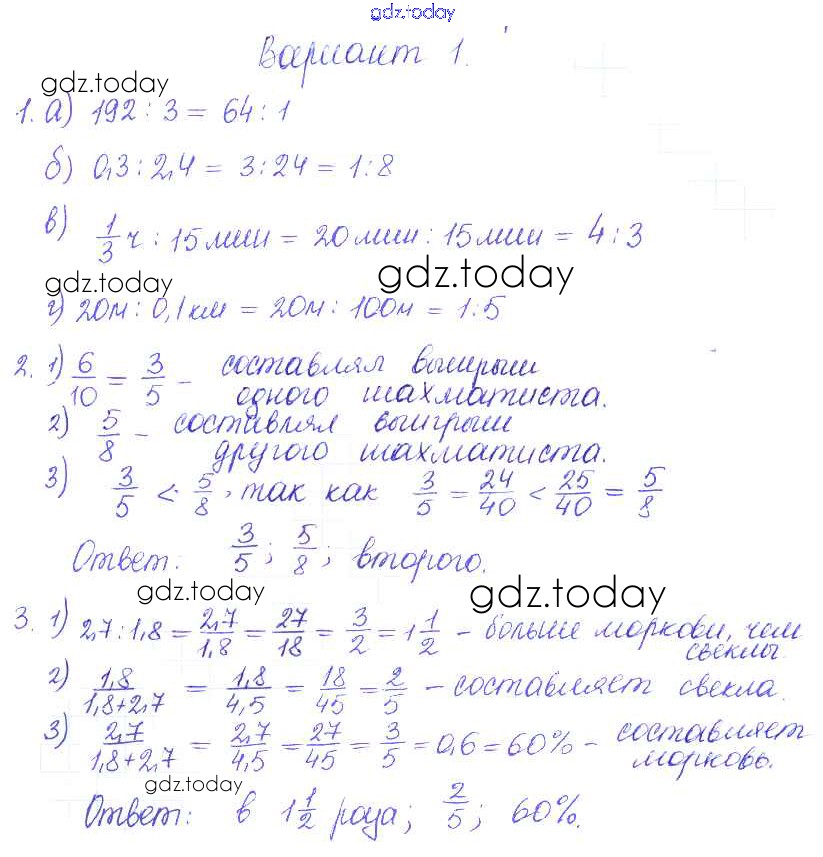 gdz.today
Вариант 1.
gdz.today
1. а) 192 : 3 = 64 : 1
б) 0,3 : 2,4 = 3 : 24 = 1 : 8
в) 1/3 ч : 15 мин = 20 мин : 15 мин = 4 : 3
gdz.today gdz.today
г) 20м : 0,1 км = 20м : 100м = 1:5
2. 1) 6/10 = 3/5 - составлял выигрыш
одного шахматиста.
2) 5/8 - составлял выигрыш
другого шахматиста.
3) 3/5 < 5/8, так как 3/5 = 24/40 < 25/40 = 5/8
Ответ: 3/5; 5/8; второго.
gdz.today gdz.today
3. 1) 2,7 : 1,8 = 2,7/1,8 = 27/18 = 3/2 = 1 1/2 - больше моркови, чем
свеклы.
2) 1,8/1,8+2,7 = 1,8/4,5 = 18/45 = 2/5 - составляет свекла.
3) 2,7/1,8+2,7 = 2,7/4,5 = 27/45 = 3/5 = 0,6 = 60% - составляет
морковь.
gdz.today
Ответ: в 1 1/2 раза; 2/5; 60%.